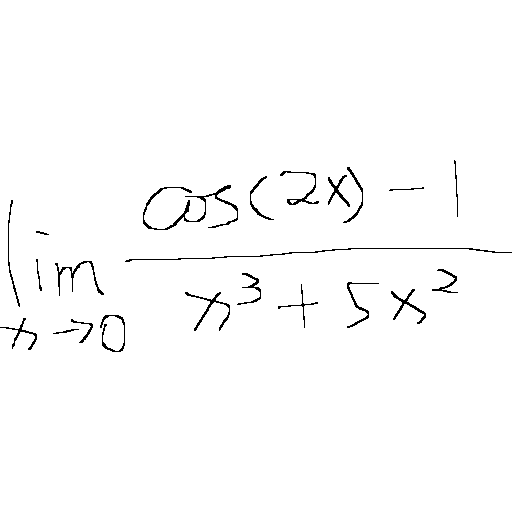 \lim_{x \to 0} \frac{\cos(2x) - 1}{x^3 + 5x^2}